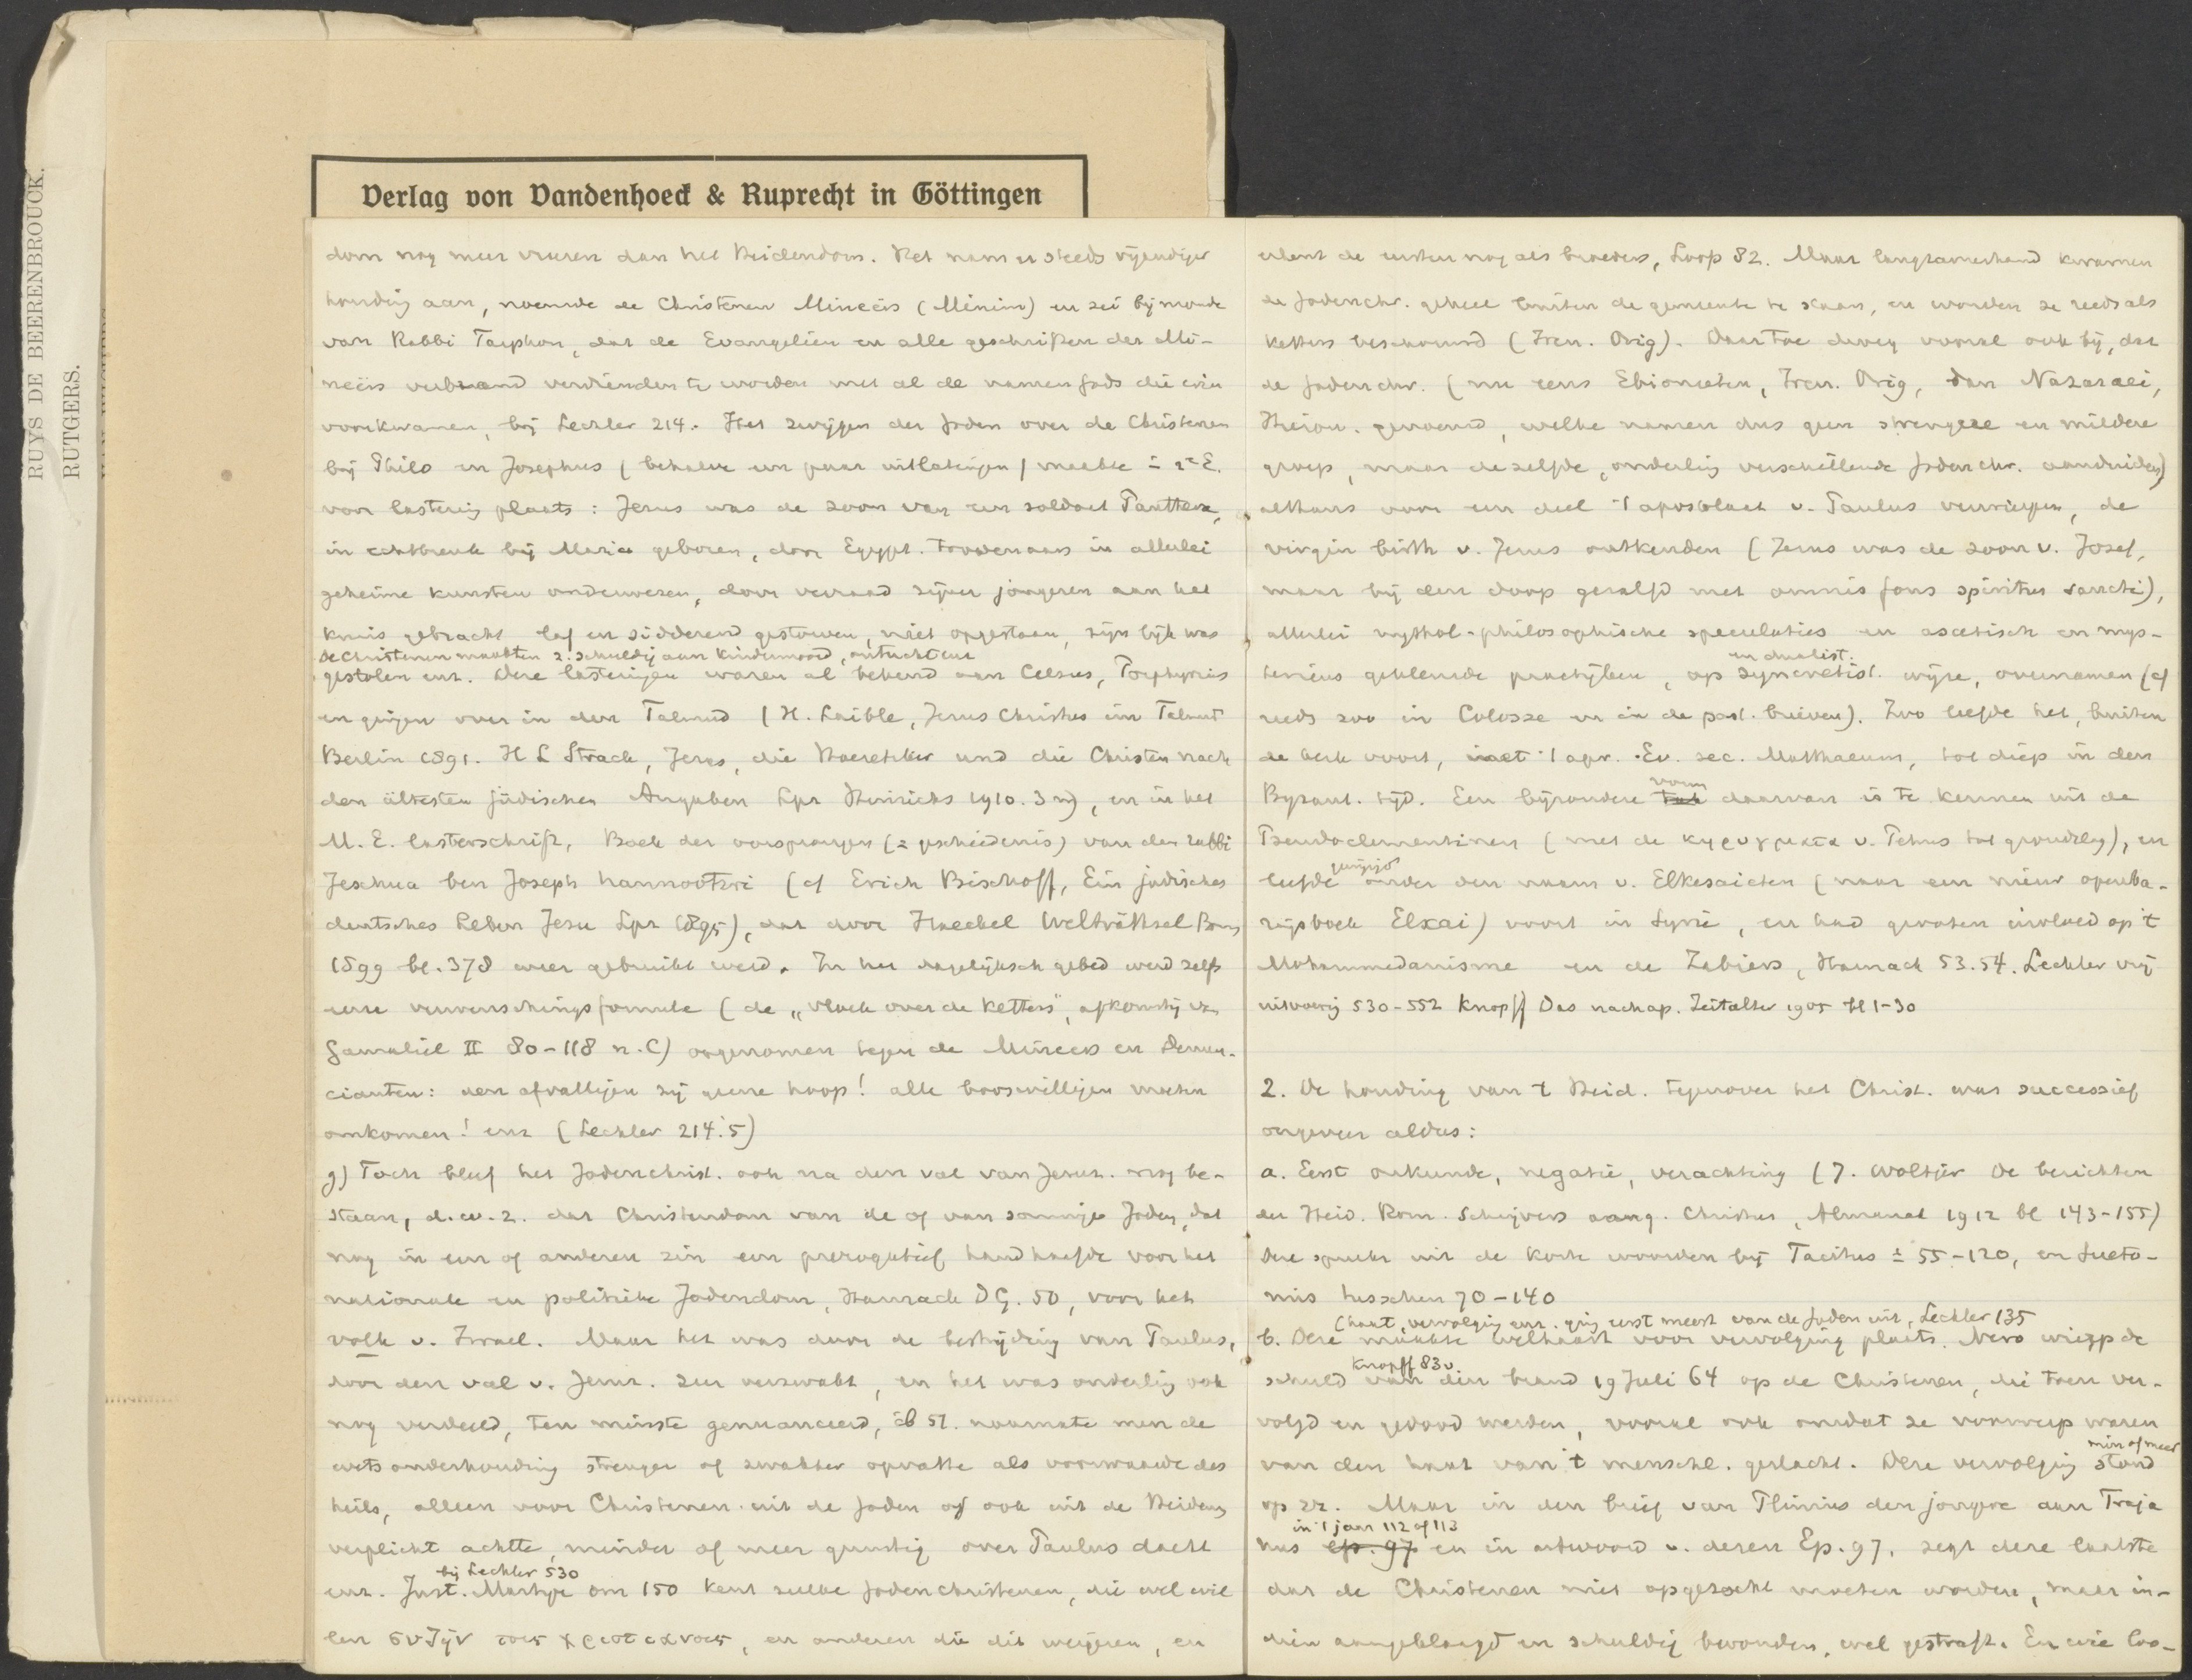 RUYS DE BEERENBROUCK.
RUTGERS.
Verlag von Vandenhoeck & Ruprecht in Göttingen
dom nog meer vreezen dan het Heidendom. Het nam een steeds vijandiger
houding aan, noemde de Christenen Mineërs (Minim) en zei bij monde
van Rabbi Tarphon, dat de Evangeliën en alle geschriften der Mi-
neërs verbrand verdienden te worden met al de namen Gods die erin
voorkwamen, bij Lechler 214. Het zwijgen der Joden over de Christenen
bij Philo en Josephus (behalve een paar uitlatingen) maakte in 2e E.
voor lastering plaats: Jezus was de zoon van een soldaat Panthera,
in echtbreuk bij Maria geboren, door Egypt. toovenaars in allerlei
geheime kunsten onderwezen, door verraad zijner jongeren aan het
kruis gebracht laf en sidderend gestorven, niet opgestaan, zijn lijk was
de Christenen maakten z. schuldig aan kindermoord, ontucht enz
gestolen enz. Deze lasteringen waren al bekend aan Celsus, Porphyrius
en gingen over in den Talmud (H. Laible, Jesus Christus im Talmud
Berlin 1891. H L Strack, Jesus, die Haeretiker und die Christen nach
den ältesten jüdischen Angaben Lpz Hinrichs 1910. 3 M), en in het
M. E. lasterschrift, Boek der oorsprongen (= geschiedenis) van den rabbi
Jeschua ben Joseph hannootzri (cf Erich Bischoff, Ein jüdisches
deutsches Leben Jesu Lpz 1895), dat door Haeckel Welträthsel Bonn
1899 bl. 378 weer gebruikt werd. In het dagelijksch gebed werd zelfs
eene verwenschingsformule (de „vloek over de ketters", afkomstig van
Gamaliël II 80-118 n. C) opgenomen tegen de Mineeërs en Denun-
cianten: den afvalligen zij geene hoop! alle booswilligen moeten
omkomen! enz (Lechler 214.5)
g) Toch bleef het Jodenchrist. ook na den val van Jeruz. nog be-
staan, d.w.z. dat Christendom van de of van sommige Joden, dat
nog in een of anderen zin een prerogatief handhaafde voor het
nationale en politieke Jodendom, Harnack DG. 50, voor het
volk v. Israel. Maar het was door de bestrijding van Paulus,
door den val v. Jeruz. zeer verzwakt, en het was onderling ook
nog verdeeld, ten minste genuanceerd, cf 51. naarmate men de
wetsonderhouding strenger of zwakker opvatte als voorwaarde des
heils, alleen voor Christenen uit de Joden of ook uit de Heidenen
verplicht achtte, minder of meer gunstig over Paulus dacht
bij Lechler 530
enz. Just. Martyr om 150 kent zulke Jodenchristenen, die wel wil-
len συζῆν τοις χριστιανοις, en anderen die dit weigeren, en
erkent de eersten nog als broeders, Loofs 82. Maar langzamerhand kwamen
de Jodenchr. geheel buiten de gemeente te staan, en worden ze reeds als
ketters beschouwd (Iren. Orig). Daartoe droeg vooral ook bij, dat
de Jodenchr. (nu eens Ebionieten, Iren. Orig, dan Nazaraei,
Hieron. genoemd, welke namen dus geen strengere en mildere
groep, maar dezelfde, onderling verschillende Jodenchr. aanduiden)
althans voor een deel 't apostolaat v. Paulus verwierpen, de
virgin birth v. Jezus ontkenden (Jezus was de zoon v. Josef,
maar bij den doop gezalfd met omnis fons spiritus sancti),
allerlei mythol-philosophische speculaties en ascetisch en mys-
en dualist.
terieus gekleurde praktijken, op syncretist. wijze, overnamen (cf
reeds zoo in Colosse en in de past. brieven). Zoo leefde het, buiten
de kerk voort, met 't apr. Ev. sec. Matthaeum, tot diep in den
vorm
Byzant. tijd. Een bijzondere tak daarvan is te kennen uit de
Pseudoclementinen (met de κηρυγματα v. Petrus tot grondslag), en
leefde onder den naam v. Elkesaieten (naar een nieuw openba-
ringsboek Elxai) voort in Syrië, en had grooten invloed op 't
Mohammedanisme en de Zabiërs, Harnack 53.54. Lechler vrij
uitvoerig 530-552 Knopff Das nachap. Zeitalter 1905 bl 1-30
2. De houding van 't Heid. tegenover het Christ. was successief
ongeveer aldus:
a. Eerst onkunde, negatie, verachting (J. Woltjer De berichten
der Heid. Rom. Schrijvers aang. Christus, Almanak 1912 bl 143-155)
Deze spreekt uit de korte woorden bij Tacitus ± 55-120, en Sueto-
nius tusschen 70-140
(haat, vervolging enz. ging eerst meest van de Joden uit, Lechler 135
b. Deze maakte welhaast voor vervolging plaats. Nero wierp de
Knopff 83 v.
schuld van den brand 19 Juli 64 op de Christenen, die toen ver-
volgd en gedood werden, vooral ook omdat ze voorwerp waren
min of meer
van den haat van 't menschl. geslacht. Deze vervolging stond
op zz. Maar in den brief van Plinius den jongere aan Traja
in 't jaar 112 of 113
nus Ep. 97 en in antwoord v. dezen Ep. 97, zegt deze laatste
dat de Christenen niet opgezocht moeten worden, maar in-
dien aangeklaagd en schuldig bevonden, wel gestraft. En wie loo-